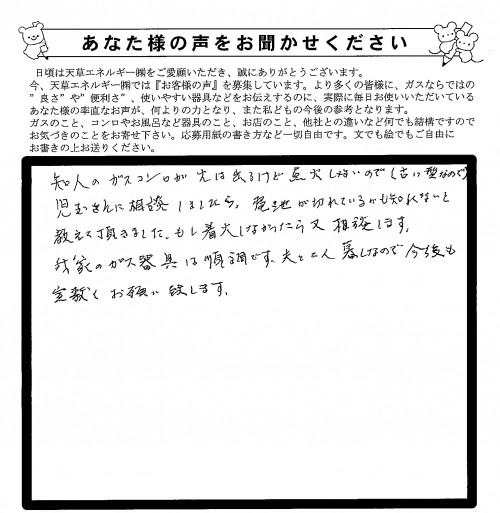 あなた様の声をお聞かせください
日頃は天草エネルギー㈱をご愛顧いただき、誠にありがとうございます。
今、天草エネルギー㈱では『お客様の声』を募集しています。より多くの皆様に、ガスならではの
”良さ”や”便利さ”、使いやすい器具などをお伝えするのに、実際に毎日お使いいただいている
あなた様の率直なお声が、何よりの力となり、また私どもの今後の参考となります。
ガスのこと、コンロやお風呂など器具のこと、お店のこと、他社との違いなど何でも結構ですので
お気づきのことをお寄せ下さい。応募用紙の書き方など一切自由です。文でも絵でもご自由に
お書きの上お送りください。
知人のガスコンロが火は出るけど点火しないので(古い型なので)
児玉さんに相談しましたら、電池が切れているかも知れないと
教えて頂きました。もし着火しなかったら又相談します。
我家のガス器具は順調です。夫と二人暮しなので今後も
宜敷くお願い致します。